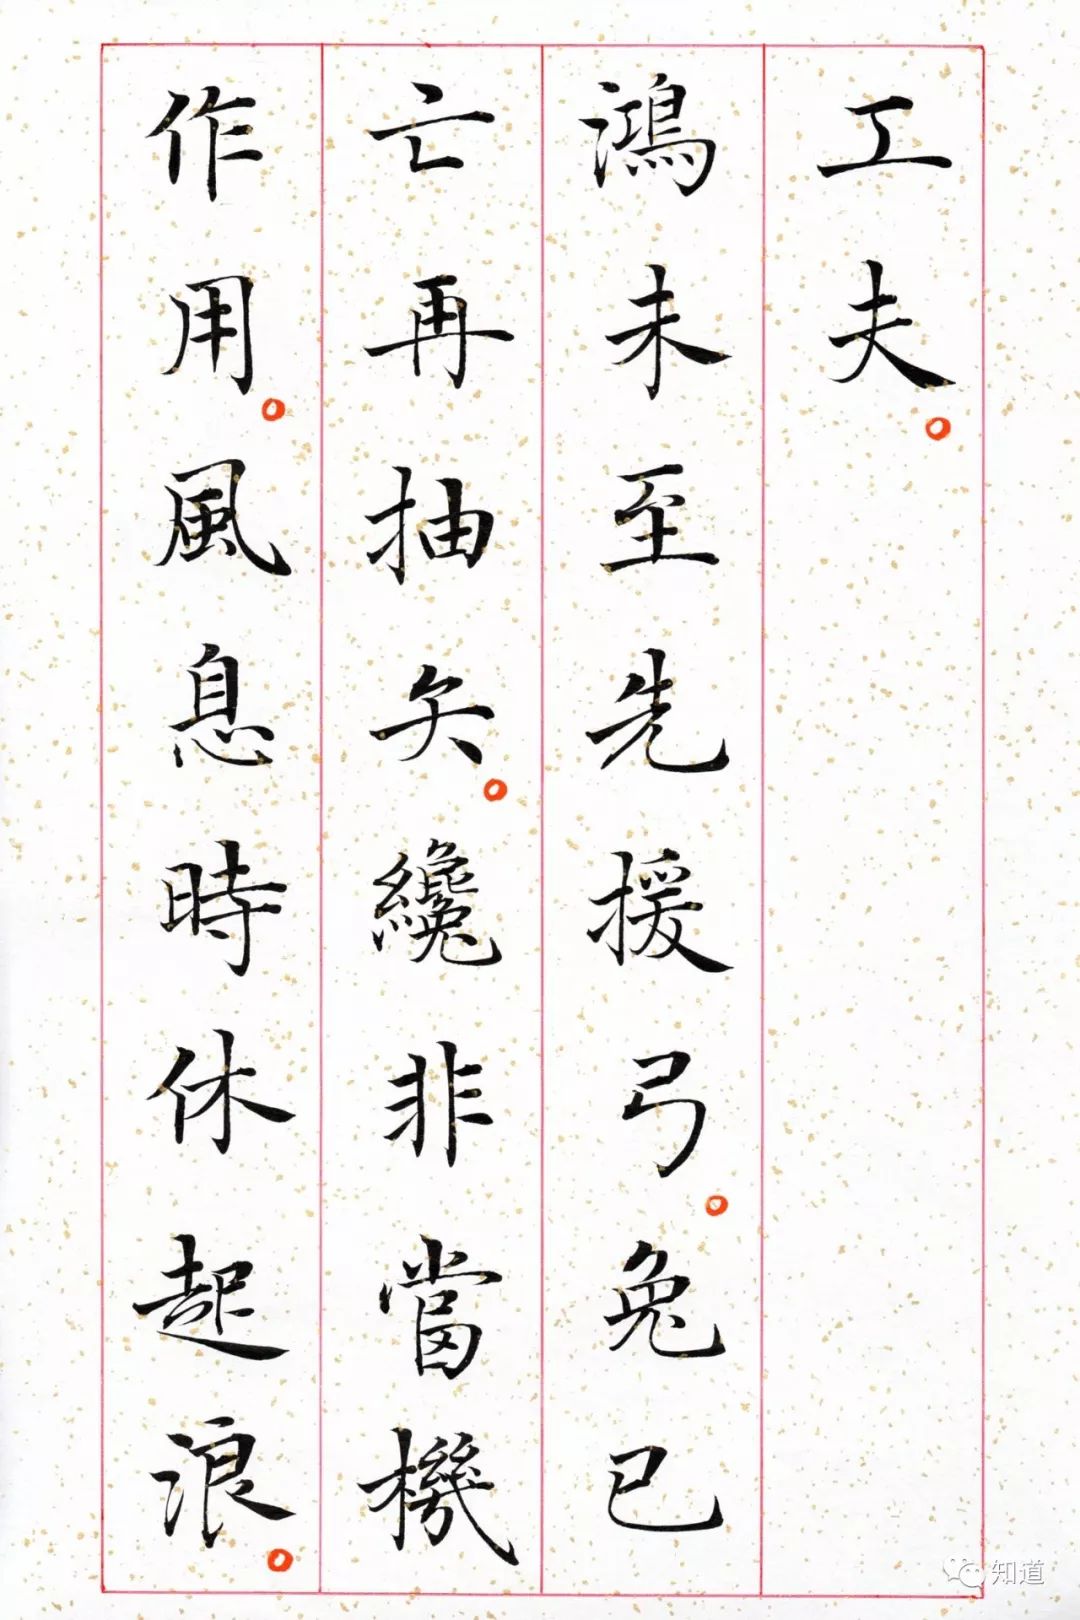 工夫。
鴻未至先援弓。兔已
亡再抽矢。纔非當機
作用。風息時休起浪。
知道